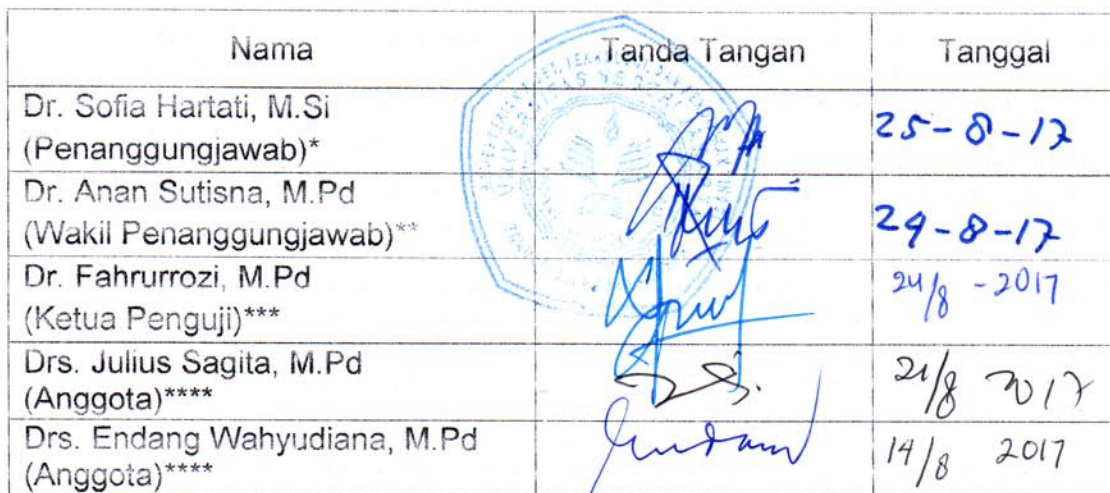 Nama Tanda Tangan Tanggal
Dr. Sofia Hartati, M.Si
(Penanggungjawab)* 25-8-17
Dr. Anan Sutisna, M.Pd
(Wakil Penanggungjawab)** 29-8-17
Dr. Fahrurrozi, M.Pd
(Ketua Penguji)*** 24/8 - 2017
Drs. Julius Sagita, M.Pd
(Anggota)**** 21/8 2017
Drs. Endang Wahyudiana, M.Pd
(Anggota)**** 14/8 2017